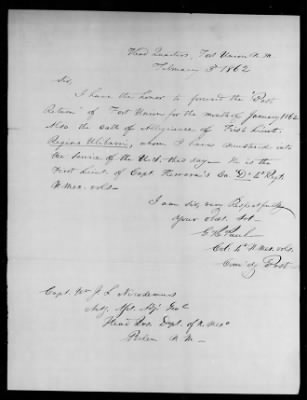 Head Quarters, Fort Union N.M.
February 3d 1862
Sir,
I have the honor to forward the "Post
Return" of Fort Union for the month of January 1862
Also the oath of Allegiance of First Lieut.
whom I have mustered into
the Service of the U.S. this day. He is the
First Lieut of Capt Co. "D" 4th Regt.
N. Mex. vols.
I am Sir, very Respectfully
Your Obt. Svt.
G. R. Paul
Col. 4th N. Mex. vols.
Com'dg Post
Capt. Wm J. L. Nicodemus
Actg. Asst. Adj. Genl
Head Qrs. Dept. of N. Mexo
N. M.